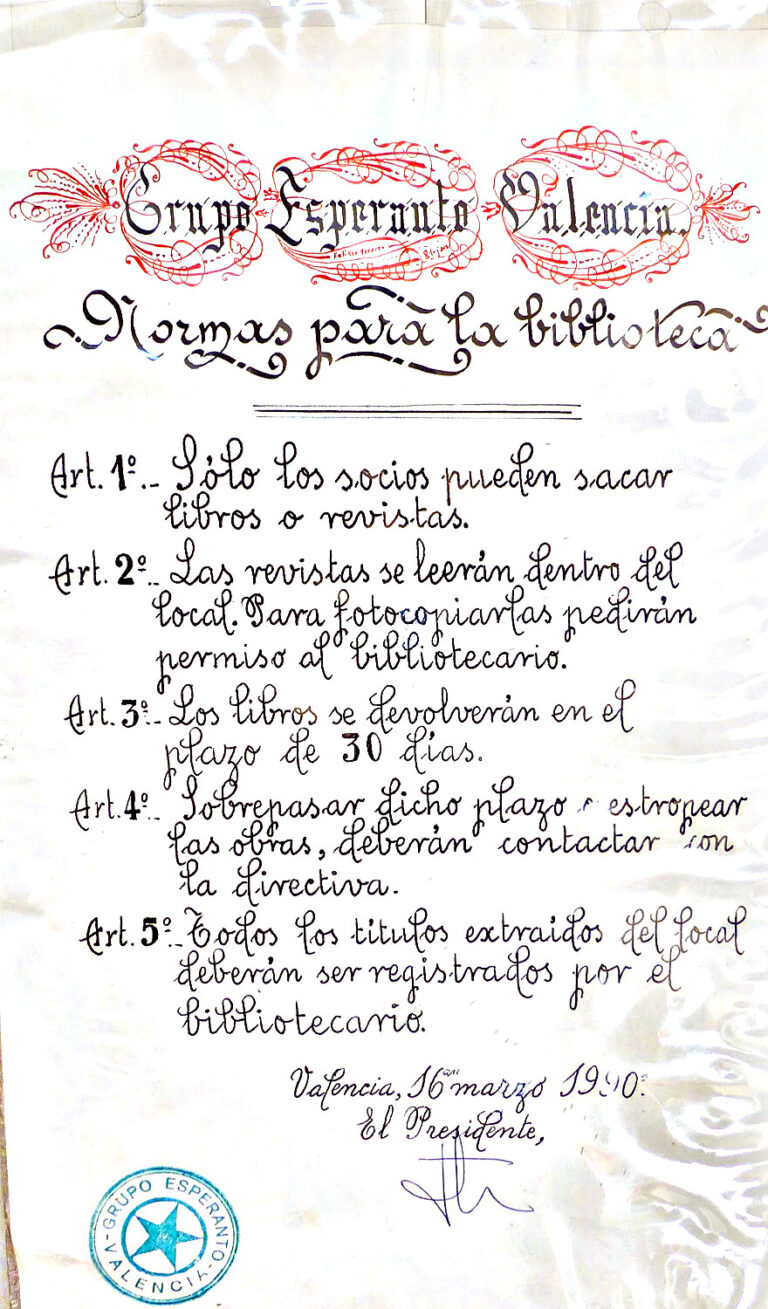 Grupo Esperanto Valencia.
Normas para la biblioteca
Art. 1º.- Sólo los socios pueden sacar
libros o revistas.
Art. 2º.- Las revistas se leerán dentro del
local. Para fotocopiarlas pedirán
permiso al bibliotecario.
Art. 3º.- Los libros se devolverán en el
plazo de 30 días.
Art. 4º.- Sobrepasar dicho plazo estropear
las obras, deberán contactar con
la directiva.
Art. 5º.- Todos los títulos extraidos del local
deberán ser registrados por el
bibliotecario.
Valencia, 16 marzo 1990.
El Presidente,
-GRUPO ESPERANTO-
VALENCIA